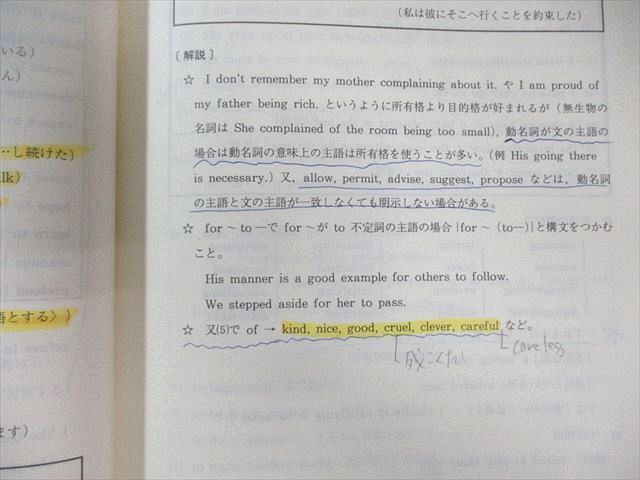 (私は彼にそこへ行くことを約束した)
〔解説〕
☆ I don't remember my mother complaining about it. や I am proud of
my father being rich. というように所有格より目的格が好まれるが（無生物の
名詞は She complained of the room being too small), 動名詞が文の主語の
場合は動名詞の意味上の主語は所有格を使うことが多い。(例 His going there
is necessary.) 又, allow, permit, advise, suggest, propose などは, 動名詞
の主語と文の主語が一致しなくても明示しない場合がある。
☆ for ~ to ―で for ~ が to 不定詞の主語の場合 |for ~ (to―)| と構文をつかむ
こと。
His manner is a good example for others to follow.
We stepped aside for her to pass.
☆ 又(5)で of → kind, nice, good, cruel, clever, careful など。
careless
いる)
ん)
…し続けた)
lk)
語とする〉)
ます)